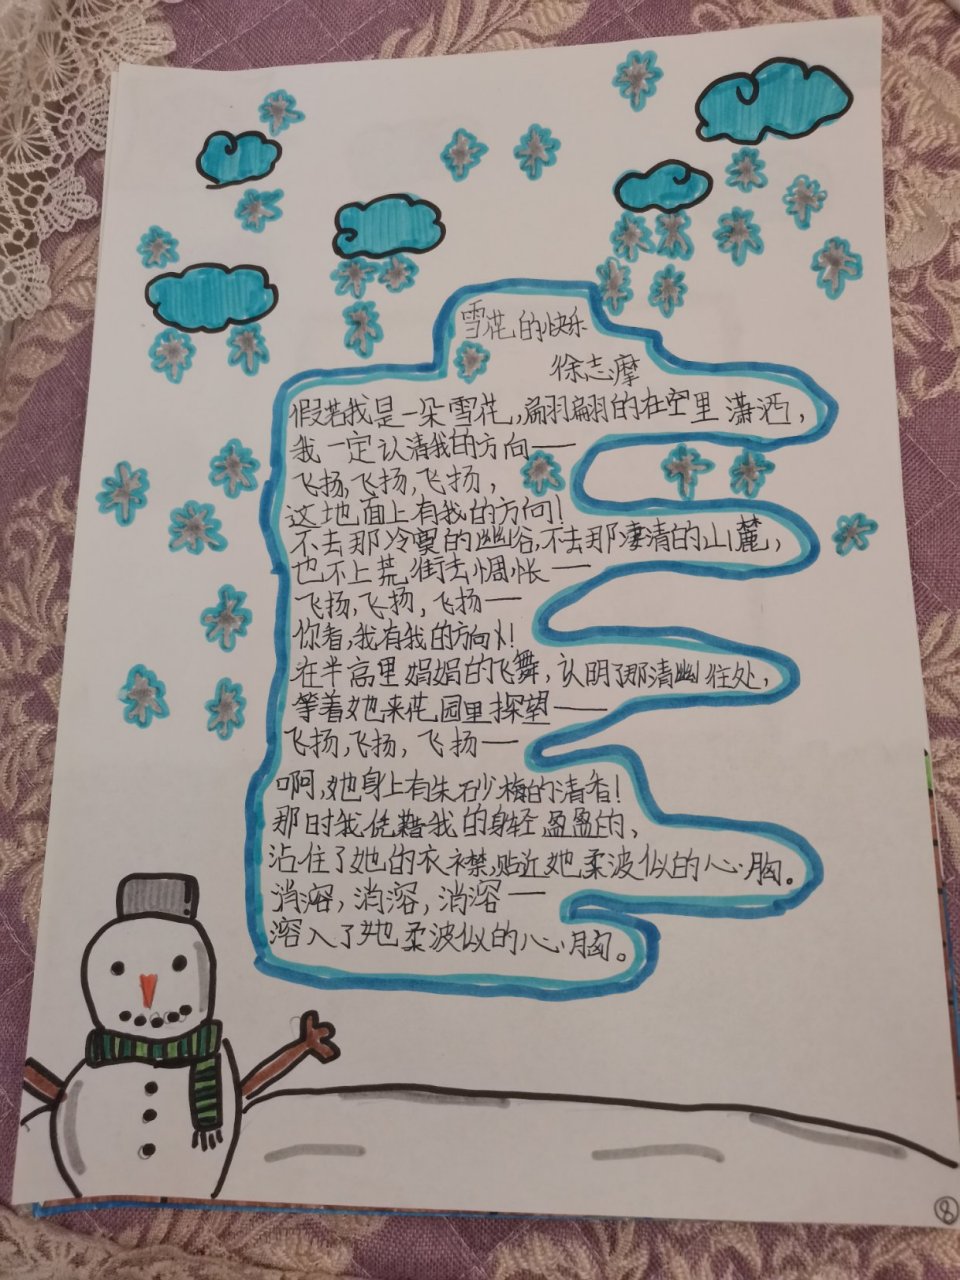 雪花的快乐
徐志摩
假若我是一朵雪花，扁羽扁羽的在空里潇洒，
我一定认清我的方向——
飞扬，飞扬，飞扬，
这地面上有我的方向！
不去那冷寞的幽谷，不去那凄清的山麓，
也不上荒街去惆怅——
飞扬，飞扬，飞扬——
你看，我有我的方向！
在半高里娟娟的飞舞，认明了那清幽住处，
等着她来花园里探望——
飞扬，飞扬，飞扬——
啊，她身上有朱砂梅的清香！
那时我凭藉我的身轻盈盈的，
沾住了她的衣襟，贴近她柔波似的心胸。
消溶，消溶，消溶——
溶入了她柔波似的心胸。
8